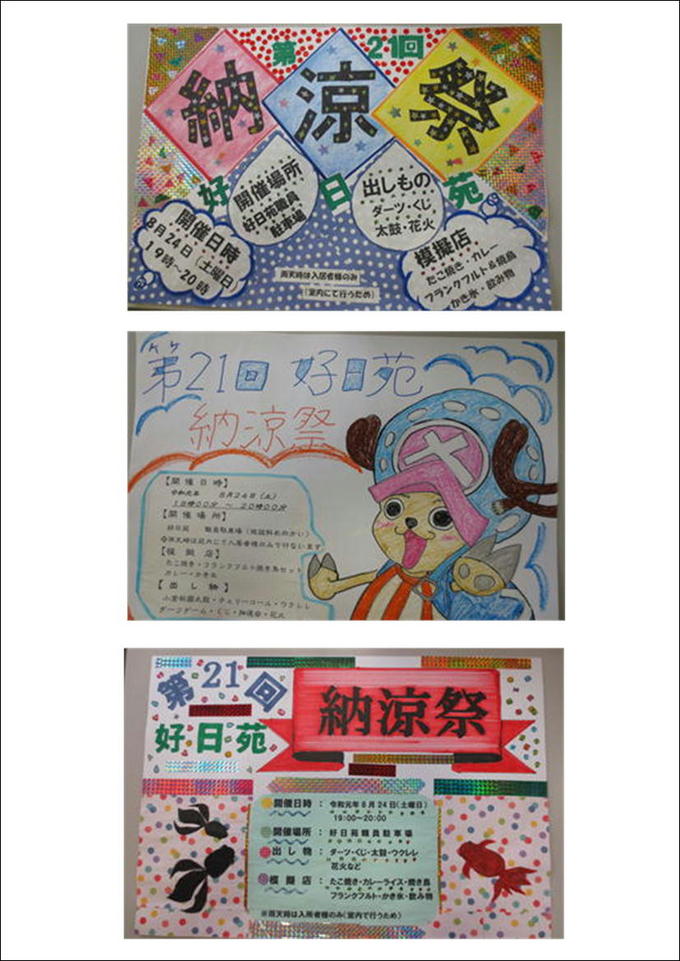 第21回
納涼祭
好日苑
開催場所
好日苑職員
駐車場
出しもの
ダーツ・くじ
太鼓・花火
開催日時
8月24日(土曜日)
19時~20時
模擬店
たこ焼き・カレー
フランクフルト&焼鳥
かき氷・飲み物
雨天時は入居者様のみ
(室内にて行うため)
第21回 好日苑
納涼祭
【開催日時】
令和元年 8月24日(土)
【開催場所】
好日苑 職員駐車場
【模擬店】
たこ焼き・フランクフルト焼き鳥セット
カレー・かき氷
【出し物】
第21回
好日苑
納涼祭
開催日時:令和元年8月24日(土曜日)
19:00~20:00
開催場所:好日苑職員駐車場
出し物:ダーツ・くじ・太鼓・ウクレレ
花火など
模擬店:たこ焼き・カレーライス・焼き鳥
フランクフルト・かき氷・飲み物
※雨天時は入所者様のみ(室内で行うため)